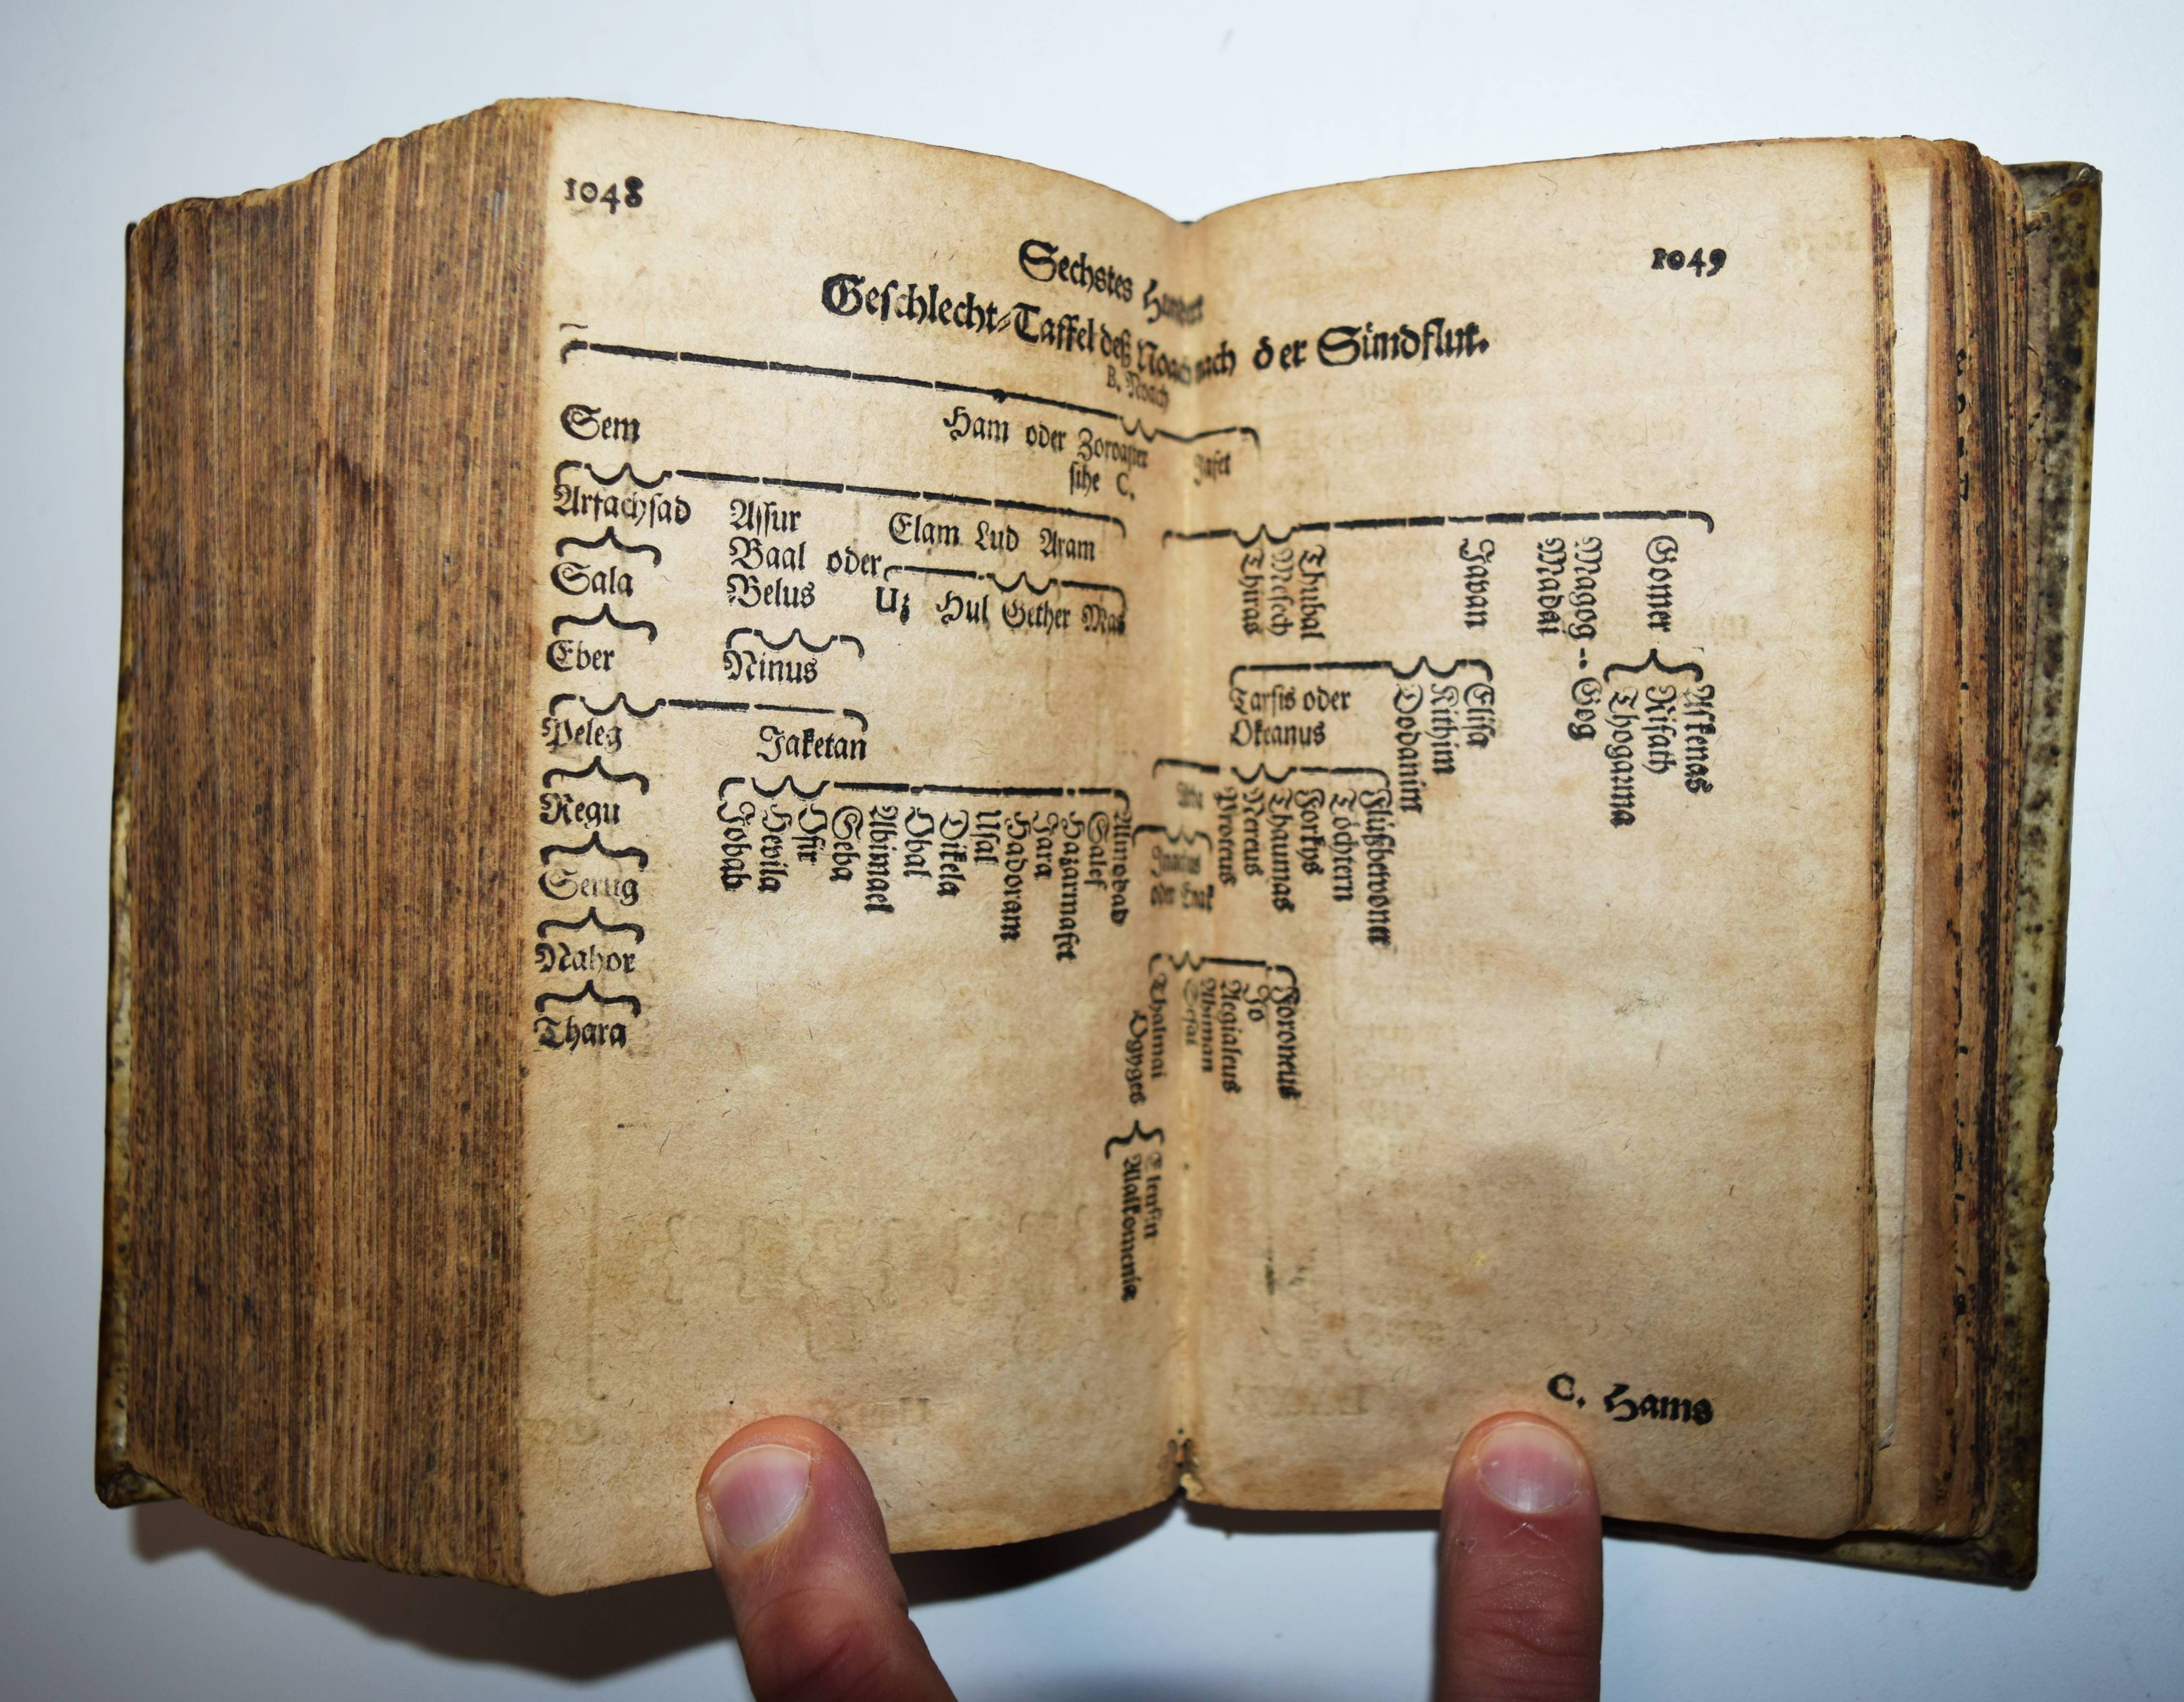 1048
1049
Sechstes
Geschlecht-Taffel deß Noach nach der Sündflut.
B. Noach
Sem
Ham oder Zoroaster
sihe C.
Jafet
Arfachsad
Assur
Baal oder
Belus
Elam Lud Aram
Sala
Uz Hul Gether Mas
Eber
Ninus
Peleg
Jaketan
Regu
Serug
Nahor
Thara
Jobab
Hevila
Ofir
Seba
Abimael
Obal
Dikela
Usal
Hadoram
Jara
Hazarmafet
Salef
Almodad
Thiras
Mesech
Thubal
Javan
Madai
Magog -- Gog
Gomer
Tarsis oder
Okeanus
Dodanim
Kithim
Elisa
Thogarma
Rifath
Askenas
Proteus
Nereus
Thaumas
Forkys
Töchtern
Flüßbewoner
Inachus
oder Enak
Thalmai
Ogyges
Ahiman
Aegialeus
Jo
Foroneus
Alalkomenia
C. Hams